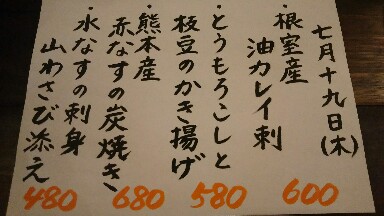 七月十九日(木)
・根室産
油カレイ刺
600
・とうもろこしと
枝豆のかき揚げ
580
・熊本産
赤なすの炭焼き
680
・水なすの刺身
山わさび添え
480